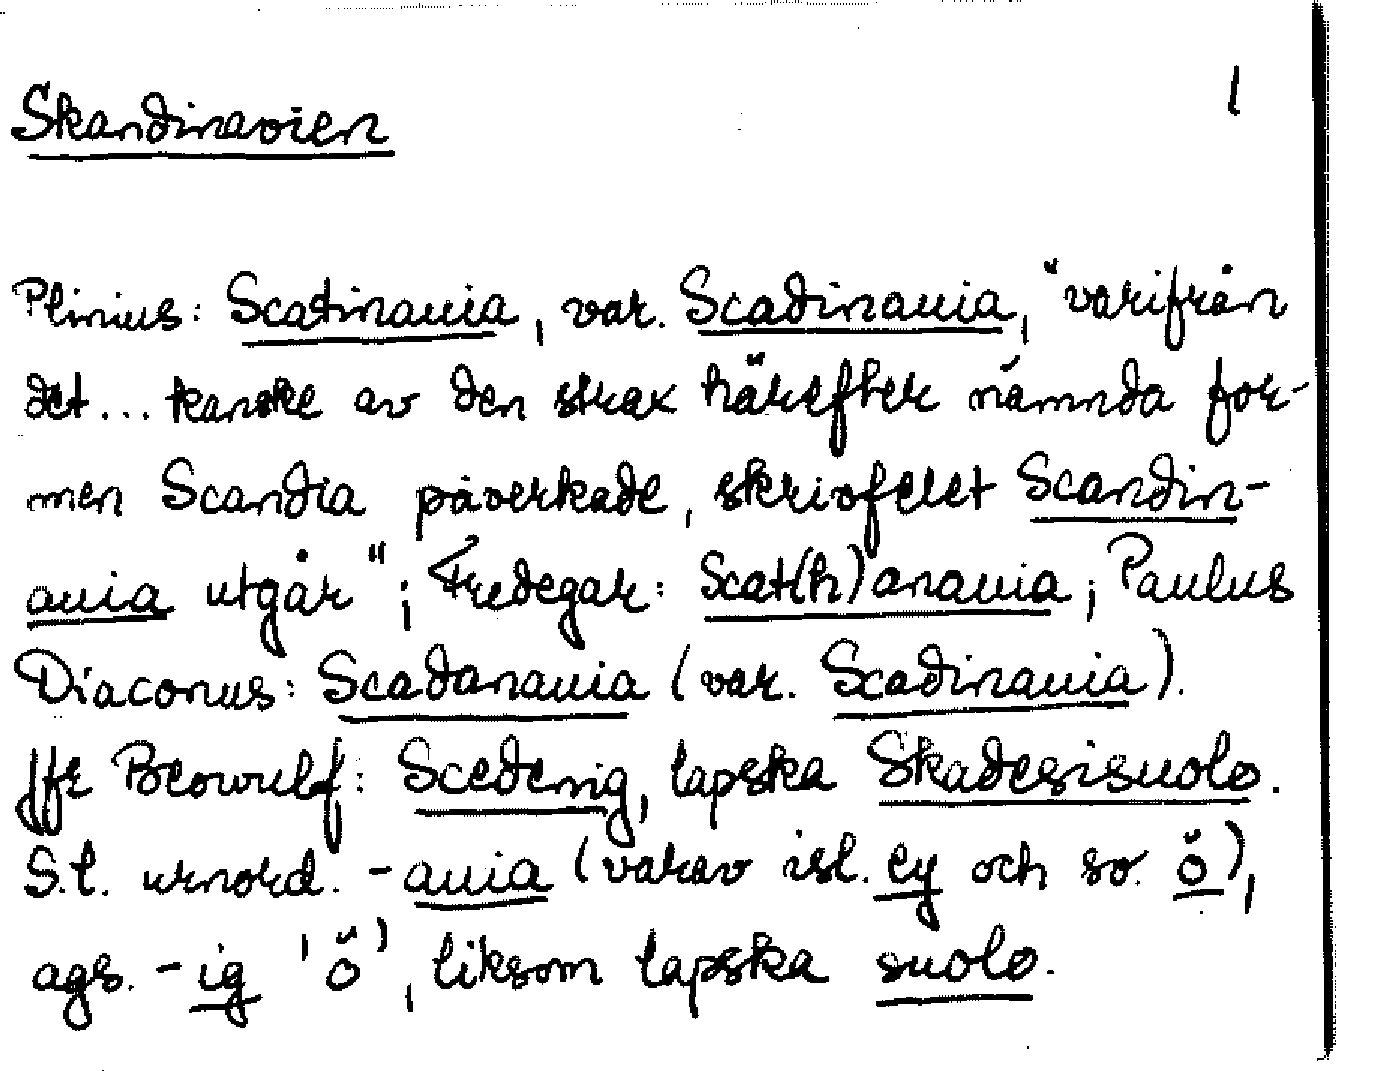 Skandinavien
1
Plinius: Scatinauia, var. Scadinauia, "varifrån
det... kanske av den strax härefter nämnda for-
men Scandia påverkade, skrivfelet Scandin-
auia utgår"; Fredegar: Scat(h)anauia; Paulus
Diaconus: Scadanauia (var. Scadinauia).
Jfr Beowulf: Scedenig, lapska Skadesisuolo.
S.l. urnord. -auia (varav isl. ey och sv. ö),
ags. -ig 'ö', liksom lapska suolo.